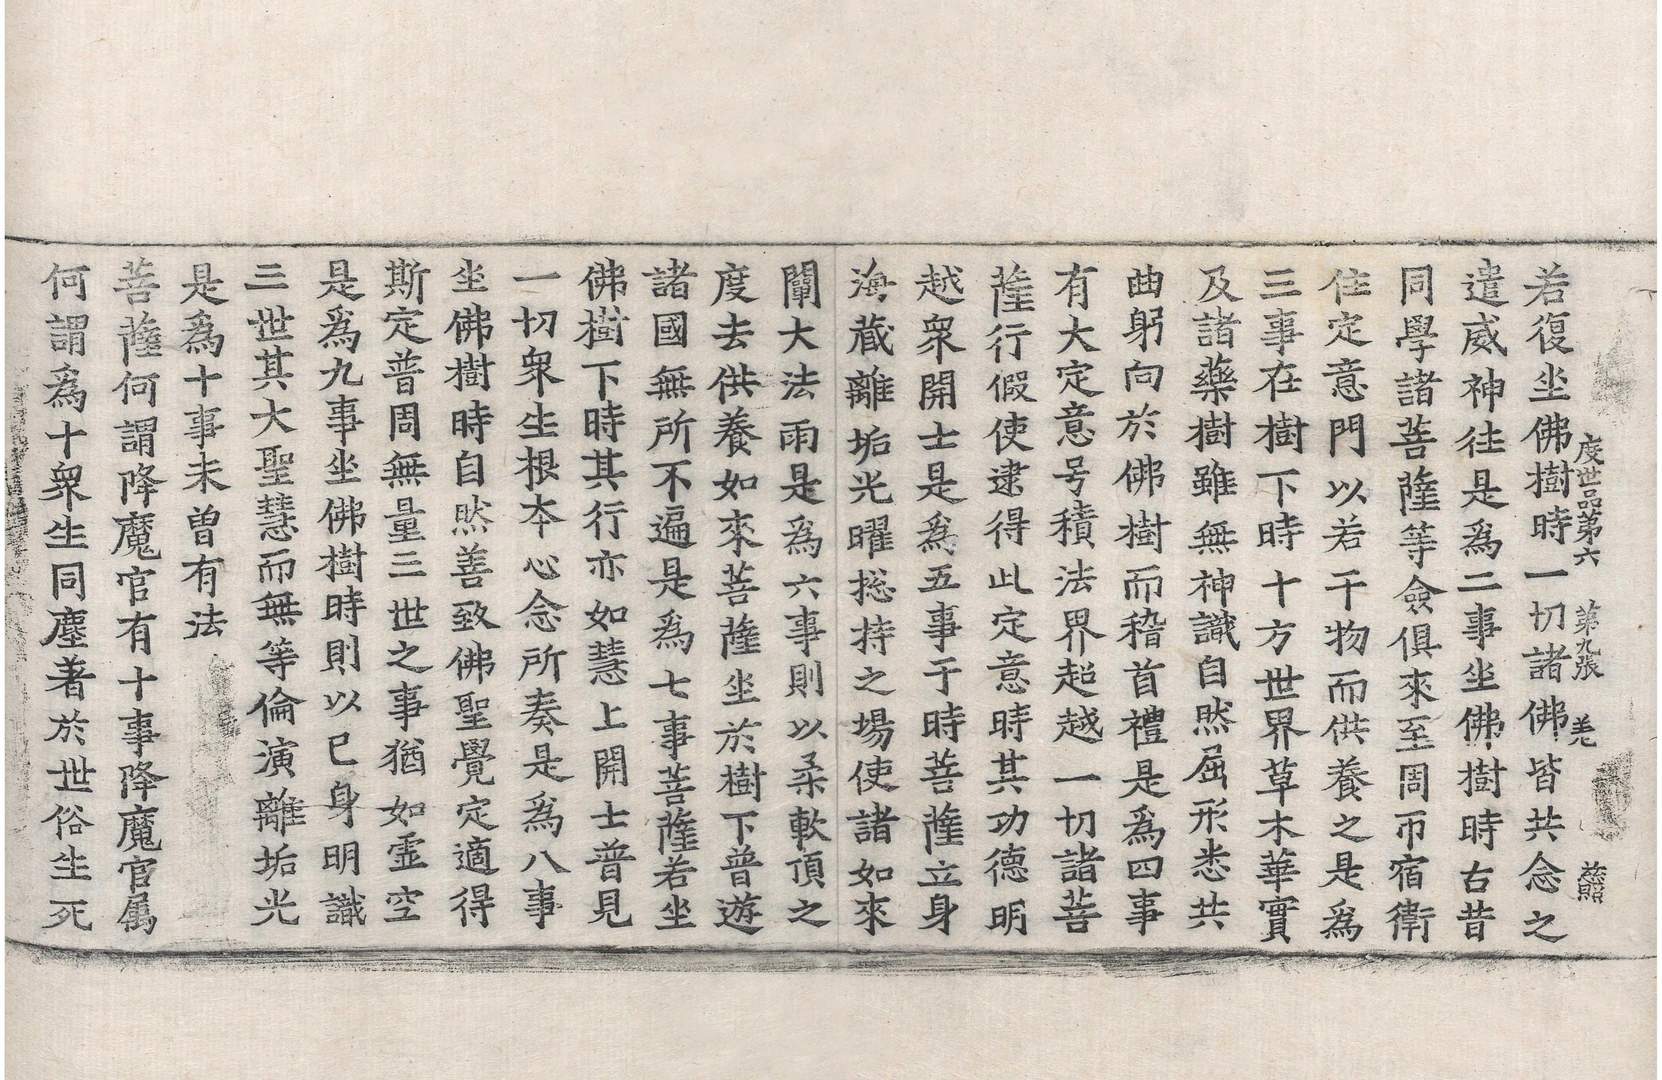 度世品第六 第九張 羌
若復坐佛樹時一切諸佛皆共念之
遣威神往是爲二事坐佛樹時右昔
同學諸菩薩等僉俱來至周帀宿衛
住定意門以若干物而供養之是爲
三事在樹下時十方世界草木華實
及諸藥樹雖無神識自然屈形悉共
曲躬向於佛樹而稽首禮是爲四事
有大定意号積法界超越一切諸菩
薩行假使逮得此定意時其功德明
越衆開士是爲五事于時菩薩立身
海藏離垢光曜捴持之場使諸如來
闡大法雨是爲六事則以柔軟頂之
度去供養如來菩薩坐於樹下普遊
諸國無所不遍是爲七事菩薩若坐
佛樹下時其行亦如慧上開士普見
一切衆生根本心念所奏是爲八事
坐佛樹時自然善致佛聖覺定適得
斯定普周無量三世之事猶如虛空
是爲九事坐佛樹時則以己身明識
三世其大聖慧而無等倫演離垢光
是爲十事未曾有法
菩薩何謂降魔官有十事降魔官属
何謂爲十衆生同塵著於世俗生死